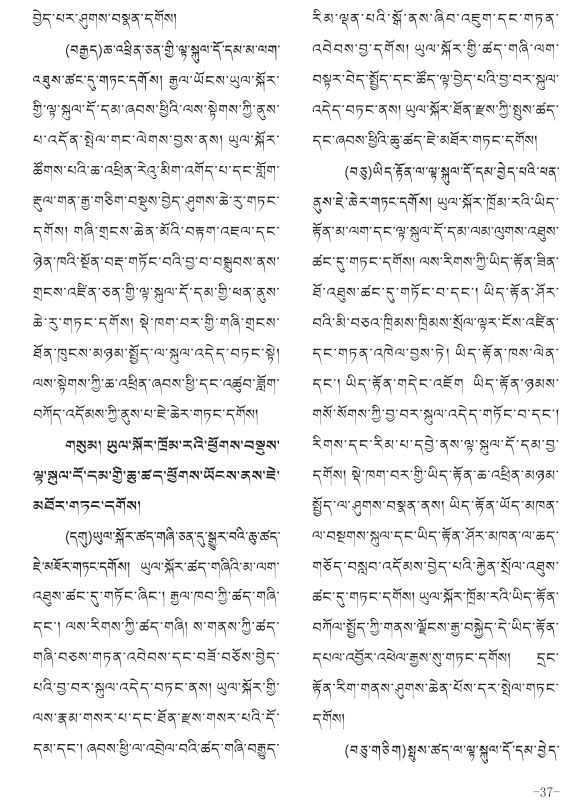 བྱེད་པར་ཤུགས་བསྣན་དགོས།
(བརྒྱད)ཆ་འཕྲིན་ཅན་གྱི་ལྟ་སྐུལ་དོ་དམ་མ་ལག་
འཐུས་ཚང་དུ་གཏང་དགོས། རྒྱལ་ཡོངས་ཡུལ་སྐོར་
གྱི་ལྟ་སྐུལ་དོ་དམ་ཞབས་ཕྱིའི་ལས་སྟེགས་ཀྱི་ནུས་
པ་འདོན་སྤེལ་གང་ལེགས་བྱས་ནས། ཡུལ་སྐོར་
ཚོགས་པའི་ཆ་འཕྲིན་རེའུ་མིག་འགོད་པ་དང་གློག་
རྡུལ་གན་རྒྱ་གཅིག་བསྡུས་བྱེད་ཤུགས་ཆེ་རུ་གཏང་
དགོས། གཞི་གྲངས་ཆེན་མོའི་བརྟག་འཇལ་དང་
ཉེན་ཁའི་སྔོན་བརྡ་གཏོང་བའི་བྱ་བ་བསྒྲུབས་ནས་
གྲངས་འཛིན་ཅན་གྱི་ལྟ་སྐུལ་དོ་དམ་གྱི་ཕན་ནུས་
ཆེ་རུ་གཏང་དགོས། སྡེ་ཁག་བར་གྱི་གཞི་གྲངས་
ཐོན་ཁུངས་མཉམ་སྤྱོད་ལ་སྐུལ་འདེད་བཏང་སྟེ།
ལས་སྟེགས་ཀྱི་ཆ་འཕྲིན་ཞབས་ཕྱི་དང་འཚུབ་ཟློག་
བཀོད་འདོམས་ཀྱི་ནུས་པ་ཇེ་ཆེར་གཏང་དགོས།
གསུམ། ཡུལ་སྐོར་ཁྲོམ་རའི་ཕྱོགས་བསྡུས་
ལྟ་སྐུལ་དོ་དམ་གྱི་ཆུ་ཚད་ཕྱོགས་ཡོངས་ནས་ཇེ་
མཐོར་གཏང་དགོས།
(དགུ)ཡུལ་སྐོར་ཚད་གཞི་ཅན་དུ་སྒྱུར་བའི་ཆུ་ཚད་
ཇེ་མཐོར་གཏང་དགོས། ཡུལ་སྐོར་ཚད་གཞིའི་མ་ལག་
འཐུས་ཚང་དུ་གཏོང་ཞིང་། རྒྱལ་ཁབ་ཀྱི་ཚད་གཞི་
དང་། ལས་རིགས་ཀྱི་ཚད་གཞི། ས་གནས་ཀྱི་ཚད་
གཞི་བཅས་གཏན་འབེབས་དང་བཟོ་བཅོས་བྱེད་
པའི་བྱ་བར་སྐུལ་འདེད་བཏང་ནས། ཡུལ་སྐོར་གྱི་
ལས་རྣམ་གསར་པ་དང་ཐོན་རྫས་གསར་པའི་དོ་
དམ་དང་། ཞབས་ཕྱི་ལ་འབྲེལ་བའི་ཚད་གཞི་བརྒྱུད་
རིམ་ལྡན་པའི་སྒོ་ནས་ཞིབ་འཇུག་དང་གཏན་
འབེབས་བྱ་དགོས། ཡུལ་སྐོར་གྱི་ཚད་གཞི་ལག་
བསྟར་བེད་སྤྱོད་དང་ཚོད་ལྟ་བྱེད་པའི་བྱ་བར་སྐུལ་
འདེད་བཏང་ནས། ཡུལ་སྐོར་ཐོན་རྫས་ཀྱི་སྤུས་ཚད་
དང་ཞབས་ཕྱིའི་ཆུ་ཚད་ཇེ་མཐོར་གཏང་དགོས།
(བཅུ)ཡིད་རྟོན་ལ་ལྟ་སྐུལ་དོ་དམ་བྱེད་པའི་ཕན་
ནུས་ཇེ་ཆེར་གཏང་དགོས། ཡུལ་སྐོར་ཁྲོམ་རའི་ཡིད་
རྟོན་མ་ལག་དང་ལྟ་སྐུལ་དོ་དམ་ལམ་ལུགས་འཐུས་
ཚང་དུ་གཏང་དགོས། ལས་རིགས་ཀྱི་ཡིད་རྟོན་ཟིན་
ཐོ་འཐུས་ཚང་དུ་གཏོང་བ་དང་། ཡིད་རྟོན་ཤོར་
བའི་མི་བཅའ་ཁྲིམས་ཁྲིམས་སྲོལ་ལྟར་ངོས་འཛིན་
དང་གཏན་འཁེལ་བྱས་ཏེ། ཡིད་རྟོན་ཁས་ལེན་
དང་། ཡིད་རྟོན་གདེང་འཇོག ཡིད་རྟོན་ཉམས་
གསོ་སོགས་ཀྱི་བྱ་བར་སྐུལ་འདེད་གཏོང་བ་དང་།
རིགས་དང་རིམ་པ་དབྱེ་ནས་ལྟ་སྐུལ་དོ་དམ་བྱ་
དགོས། སྡེ་ཁག་བར་གྱི་ཡིད་རྟོན་ཆ་འཕྲིན་མཉམ་
སྤྱོད་ལ་ཤུགས་བསྣན་ནས། ཡིད་རྟོན་ཡོད་མཁན་
ལ་བསྔགས་སྐུལ་དང་ཡིད་རྟོན་ཤོར་མཁན་ལ་ཆད་
གཅོད་བསླབ་འདོམས་བྱེད་པའི་རྐྱེན་སྲོལ་འཐུས་
ཚང་དུ་གཏང་དགོས། ཡུལ་སྐོར་ཁྲོམ་རའི་ཡིད་རྟོན་
བཀོལ་སྤྱོད་ཀྱི་གནས་ལྗོངས་རྒྱ་བསྐྱེད་དེ་ཡིད་རྟོན་
དཔལ་འབྱོར་འཕེལ་རྒྱས་སུ་གཏང་དགོས། དྲང་
རྟོན་རིག་གནས་ཤུགས་ཆེན་པོས་དར་སྤེལ་གཏང་
དགོས།
(བཅུ་གཅིག)སྤུས་ཚད་ལ་ལྟ་སྐུལ་དོ་དམ་བྱེད་
-37-